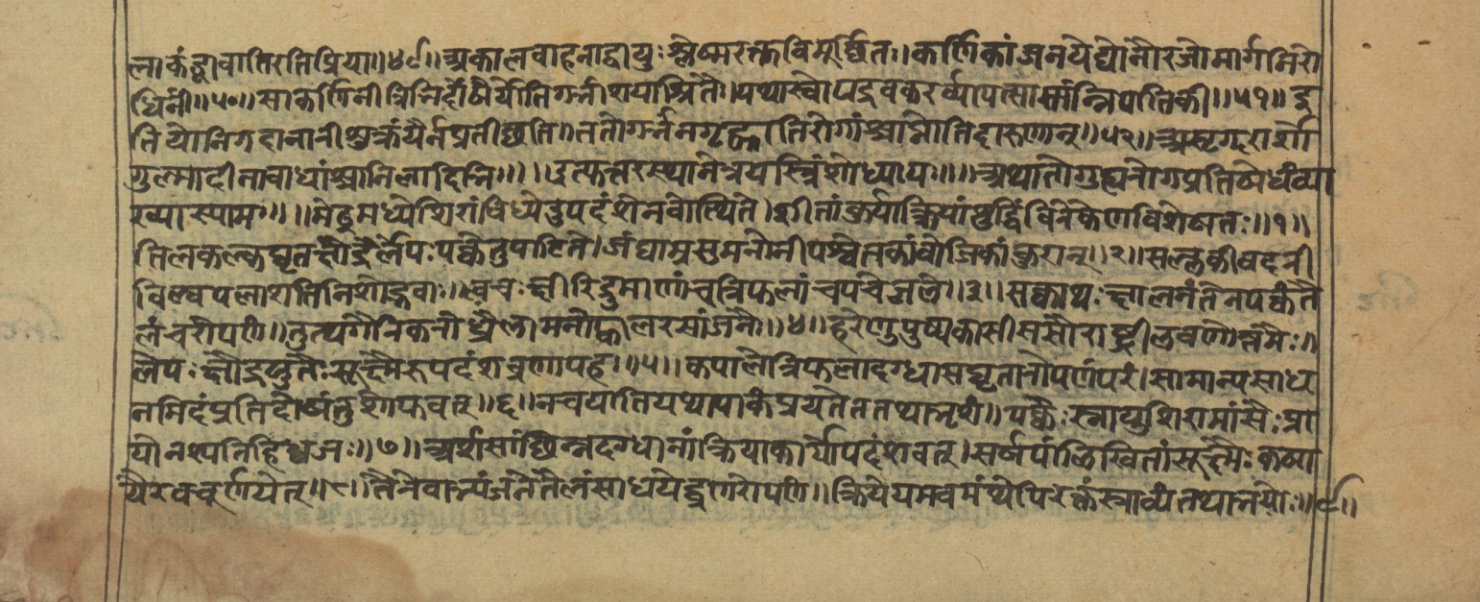 लाकंडूवातिरतिप्रिया॥४९॥अकालवाहनाद्वायुःश्लेष्मरक्तविमूर्छितः।कर्णिकांजनयेद्योनौरजोमार्गनिरो
धिनीं॥५०॥साकर्णिनीत्रिभिर्दोषैर्योनिगर्भाशयाश्रितैः।यथास्वोपद्रवकरैर्व्यापत्सासांन्निपातिकी॥५१॥इ
तियोनिगदानारीशुक्रंयैर्नप्रतीछति॥ततोगर्भंनगृह्णातिरोगांश्चाप्नोतिदारुणान्॥५२॥असृग्दरार्शो
गुल्मादीनाबाधांश्चानिलादिभिः॥॥उत्तरस्थानेत्रयस्त्रिंशोध्यायः॥॥अथातोगुह्यरोगप्रतिषेधंव्या
ख्यास्यामः॥॥मेढ्रमध्येशिरांविध्येदुपदंशेनवोत्थिते।शीतांकुर्यात्क्रियांशुद्धिंविरेकेणविशेषतः॥१॥
तिलकल्कघृतक्षौद्रैर्लेपःपक्वेतुपाटिते।जंब्वाम्रसुमनोनीपश्वेतकांबोजिकांकुरान्॥२॥सल्लकीबदरी
बिल्वपलाशतिनिशोद्भवाः॥त्वचःक्षीरिद्रुमाणांचत्रिफलांचपचेज्जले॥३॥सक्वाथःक्षालनंतेनपक्वंतै
लंचरोपणं॥तुत्थगैरिकलोध्रैलामनोह्वालरसांजनैः॥४॥हरेणुपुष्पकासीससौराष्ट्रीलवणोत्तमैः॥
लेपःक्षौद्रयुतैःसूक्ष्मैरुपदंशव्रणापहः॥५॥कपालेत्रिफलादग्धासघृतारोपणंपरं।सामान्यंसाध
नमिदंप्रतिदोषंतुशोफवत्॥६॥नचयातियथापाकंप्रयतेततथाभृशं॥पक्वैःस्नायुशिरामांसैःप्रा
योनश्यतिहिध्वजः॥७॥अर्शसांछिन्नदग्धानांक्रियाकार्योपदंशवत्।सर्षपांलिखितांसूक्ष्मैःकषा
यैरवचूर्णयेत्॥८॥तैरेवाभ्यंजनंतैलंसाधयेद्व्रणरोपणं॥क्रियेयमवमंथेपिरक्तंस्राव्यंतथोभयोः॥९॥